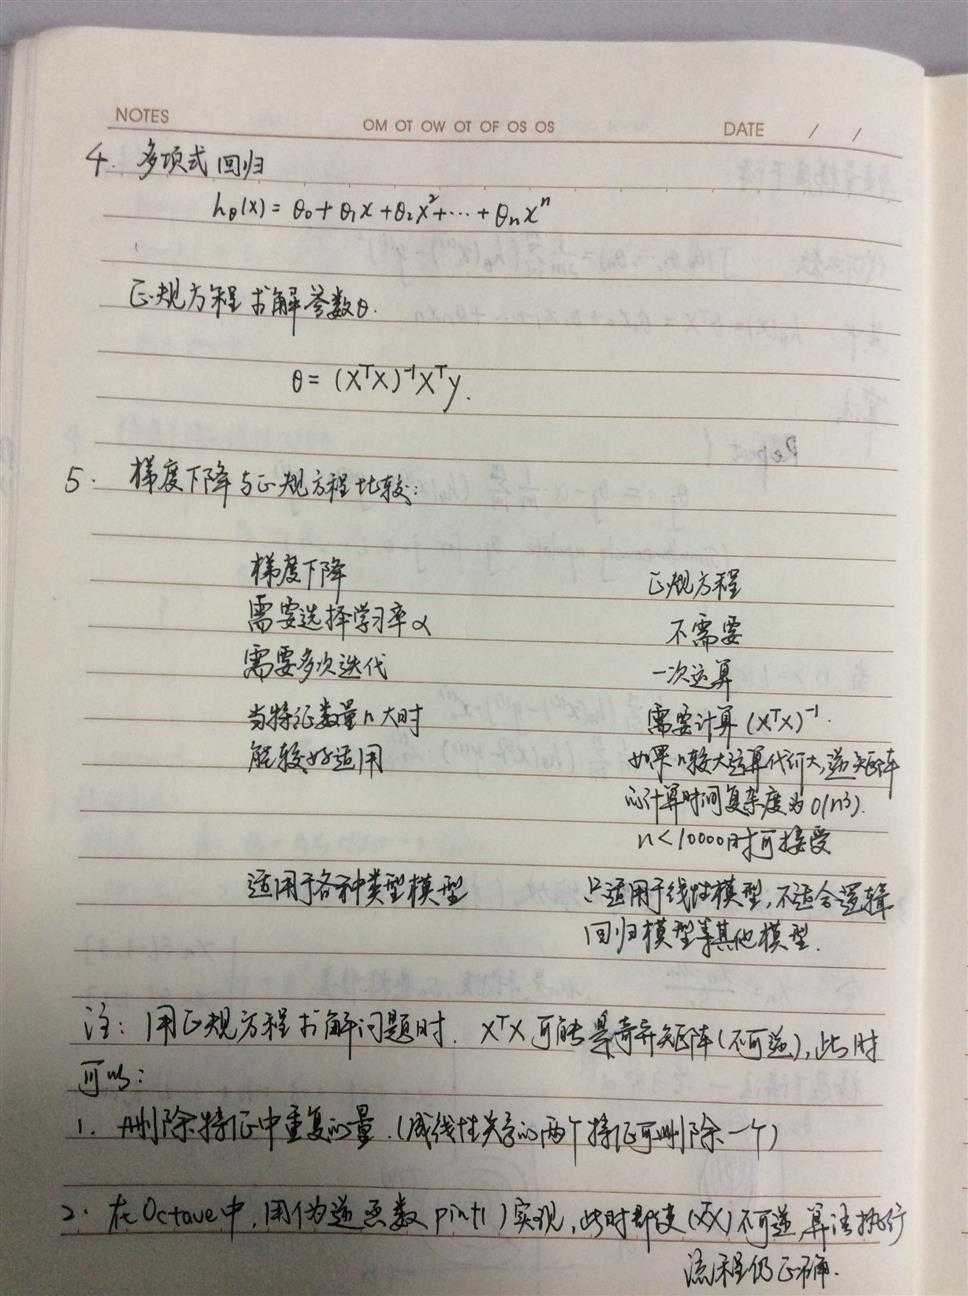 NOTES OM OT OW OT OF OS OS DATE / /
4. 多项式回归
hθ(x) = θ₀ + θ₁x + θ₂x² + ⋯ + θₙxⁿ
正规方程求解参数θ.
θ = (XᵀX)⁻¹Xᵀy.
5. 梯度下降与正规方程比较:
梯度下降 正规方程
需要选择学习率α 不需要
需要多次迭代 一次运算
当特征数量n大时 需要计算(XᵀX)⁻¹.
能较好适用 如果n较大运算代价大,逆矩阵
的计算时间复杂度为O(n³).
n<10000时可接受
适用于各种类型模型 只适用于线性模型,不适合逻辑
回归模型等其他模型.
注: 用正规方程求解问题时. XᵀX可能是奇异矩阵(不可逆),此时
可以:
1. 删除特征中重复的量.(成线性关系的两个特征可删除一个)
2. 在Octave中,用伪逆函数pinv()实现,此时即使(XᵀX)不可逆,算法执行
流程仍正确.